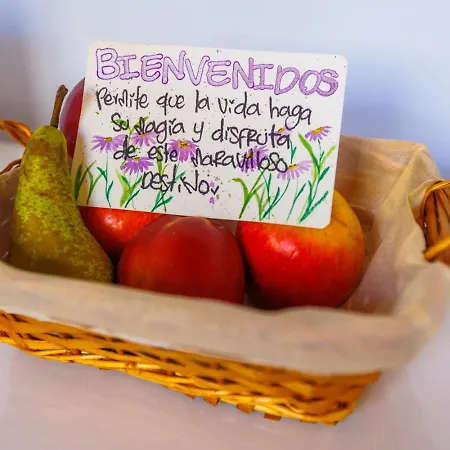 BIENVENIDOS
Permite que la vida haga
Su magia y disfruta
de este maravilloso
Destino.